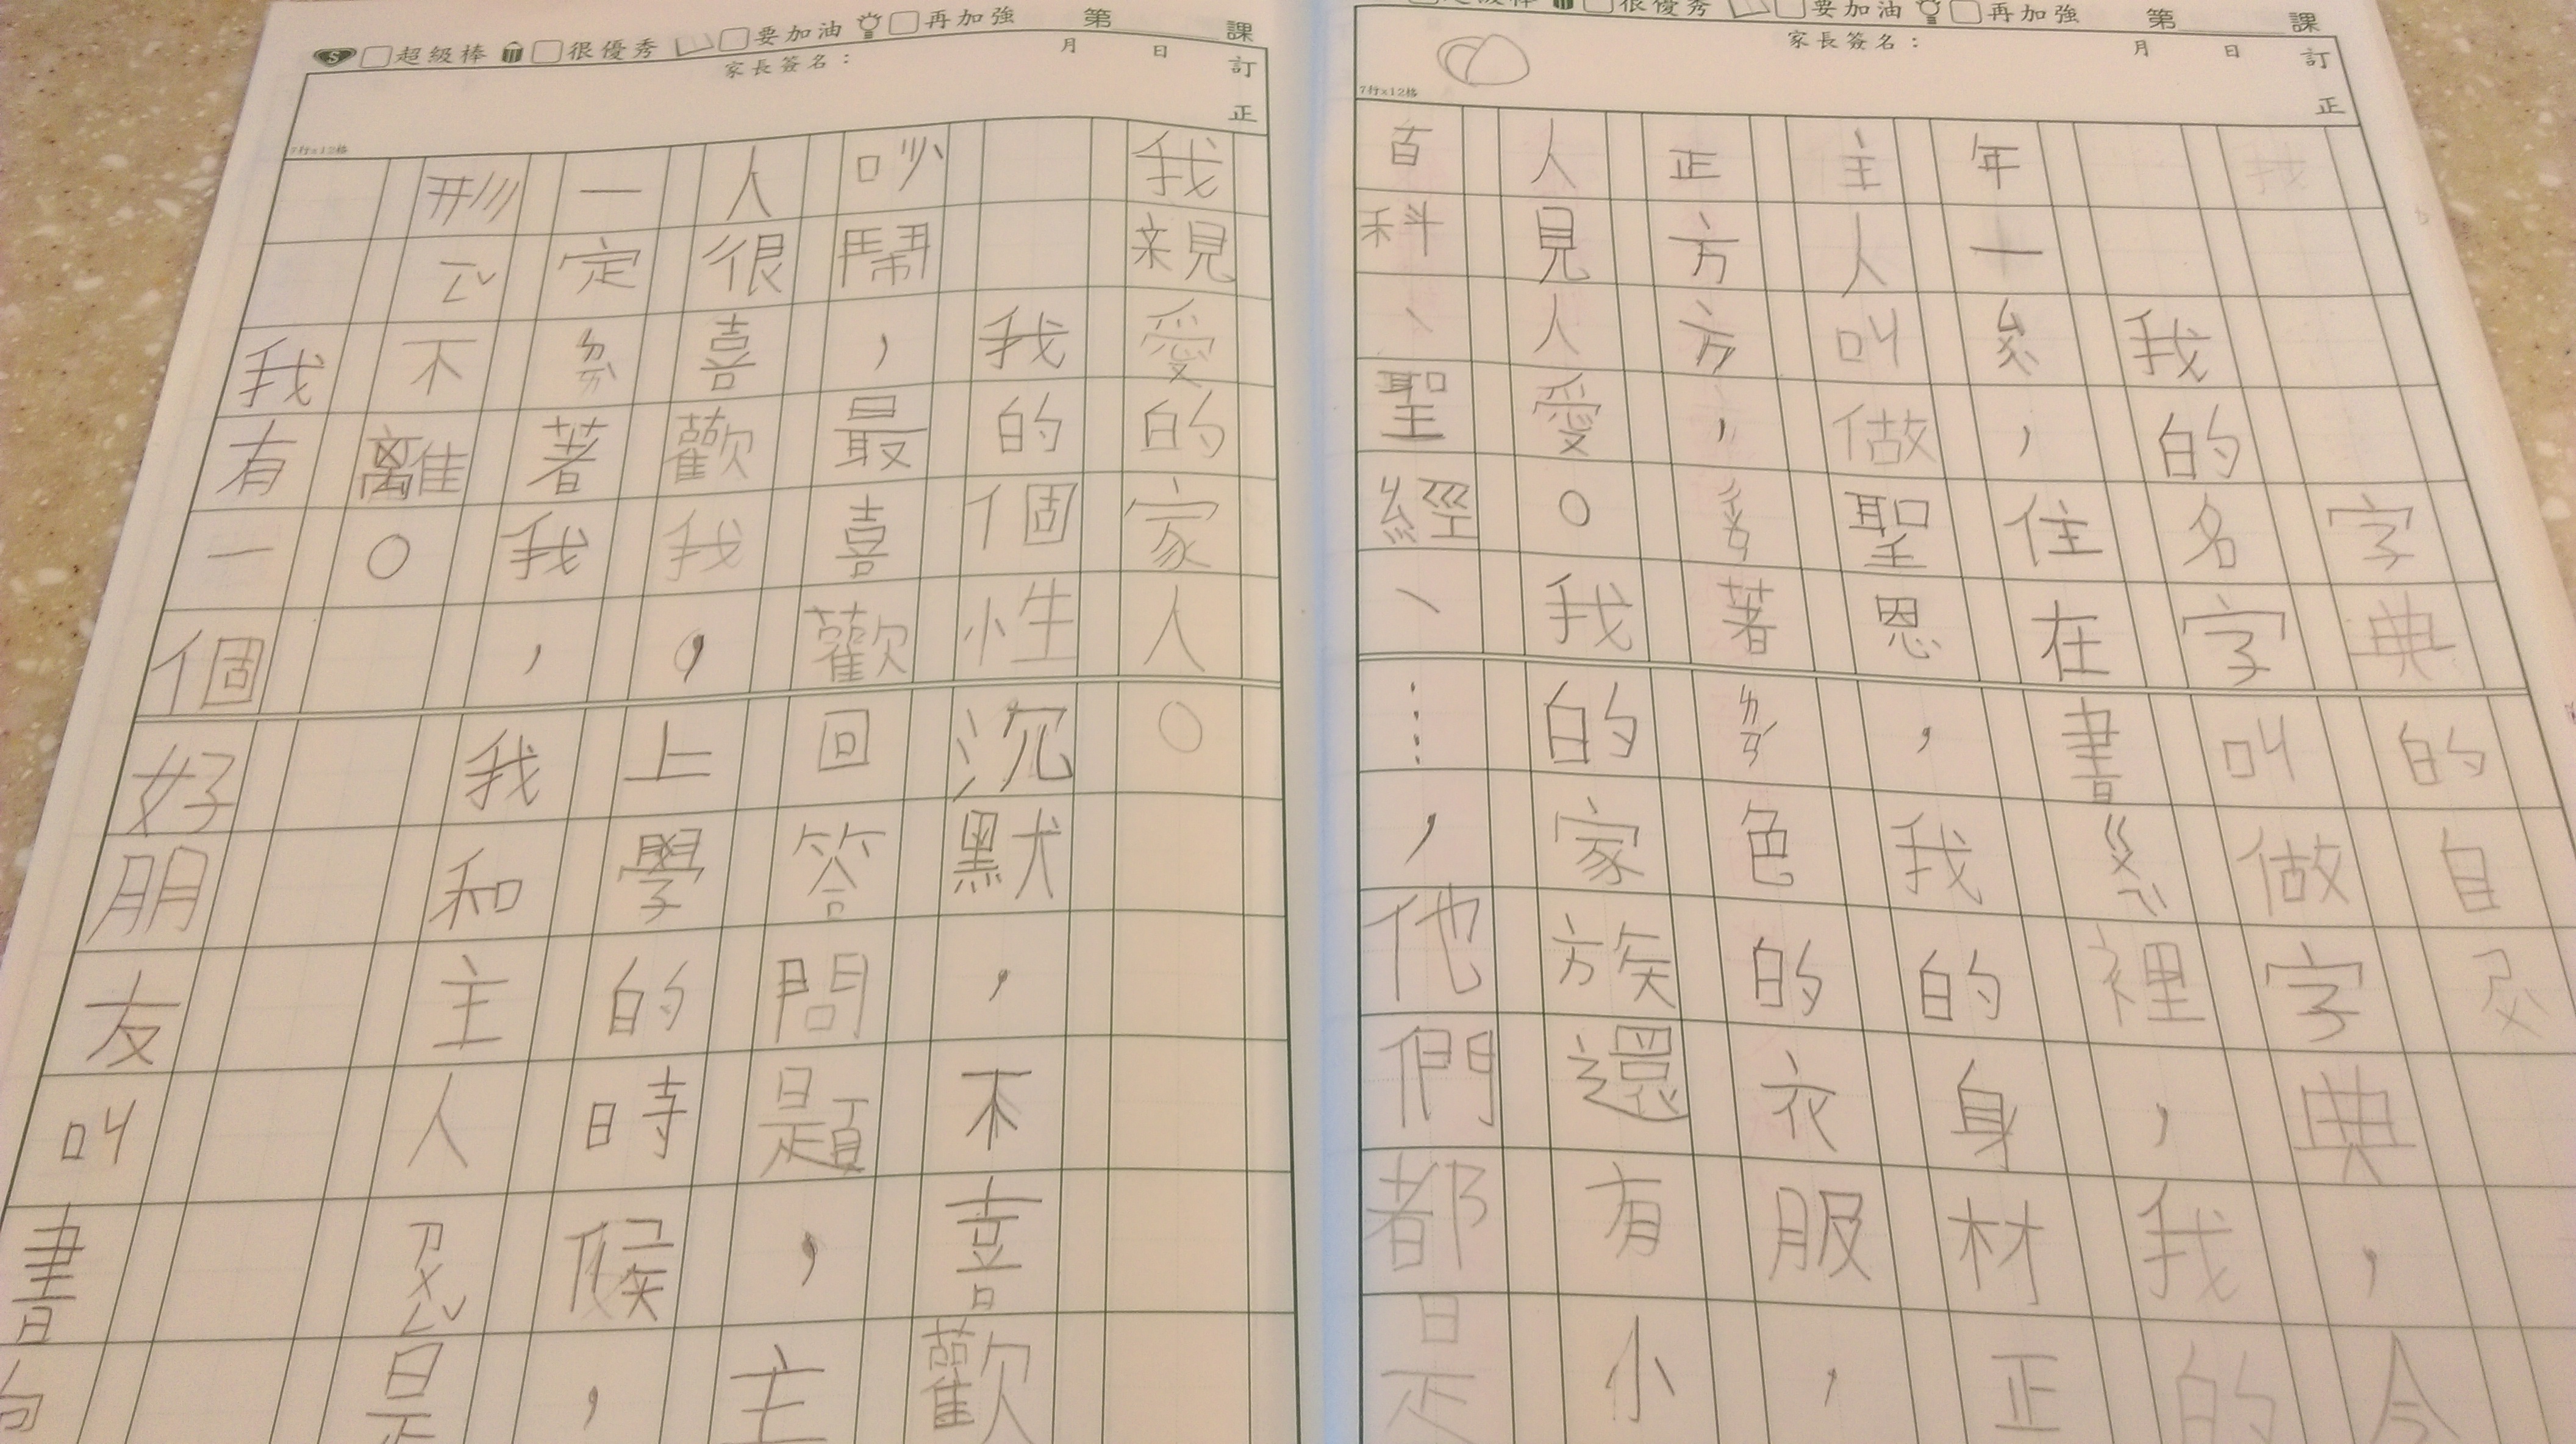 超級棒 很優秀 要加油 再加強 第 課
家長簽名： 月 日 訂正
7行x12格
字典的自ㄕㄨˋ
我的名字叫做字典，今
年一ㄙㄨㄟˋ，住在書ㄍㄨㄟˋ裡，我的
主人叫做聖恩，我的身材正
正方方，ㄔㄨㄢ著色的衣服，
人見人愛。我的家族還有小
百科、聖經、……，他們都是
超級棒 很優秀 要加油 再加強 第 課
家長簽名： 月 日 訂正
7行x12格
我親愛的家人。
我的個性沉默，不喜歡
吵鬧，最喜歡回答問題，主
人很喜歡我，上學的時候，
一定ㄉㄞˋ著我，我和主人是
形不離。
我有一個好朋友叫書